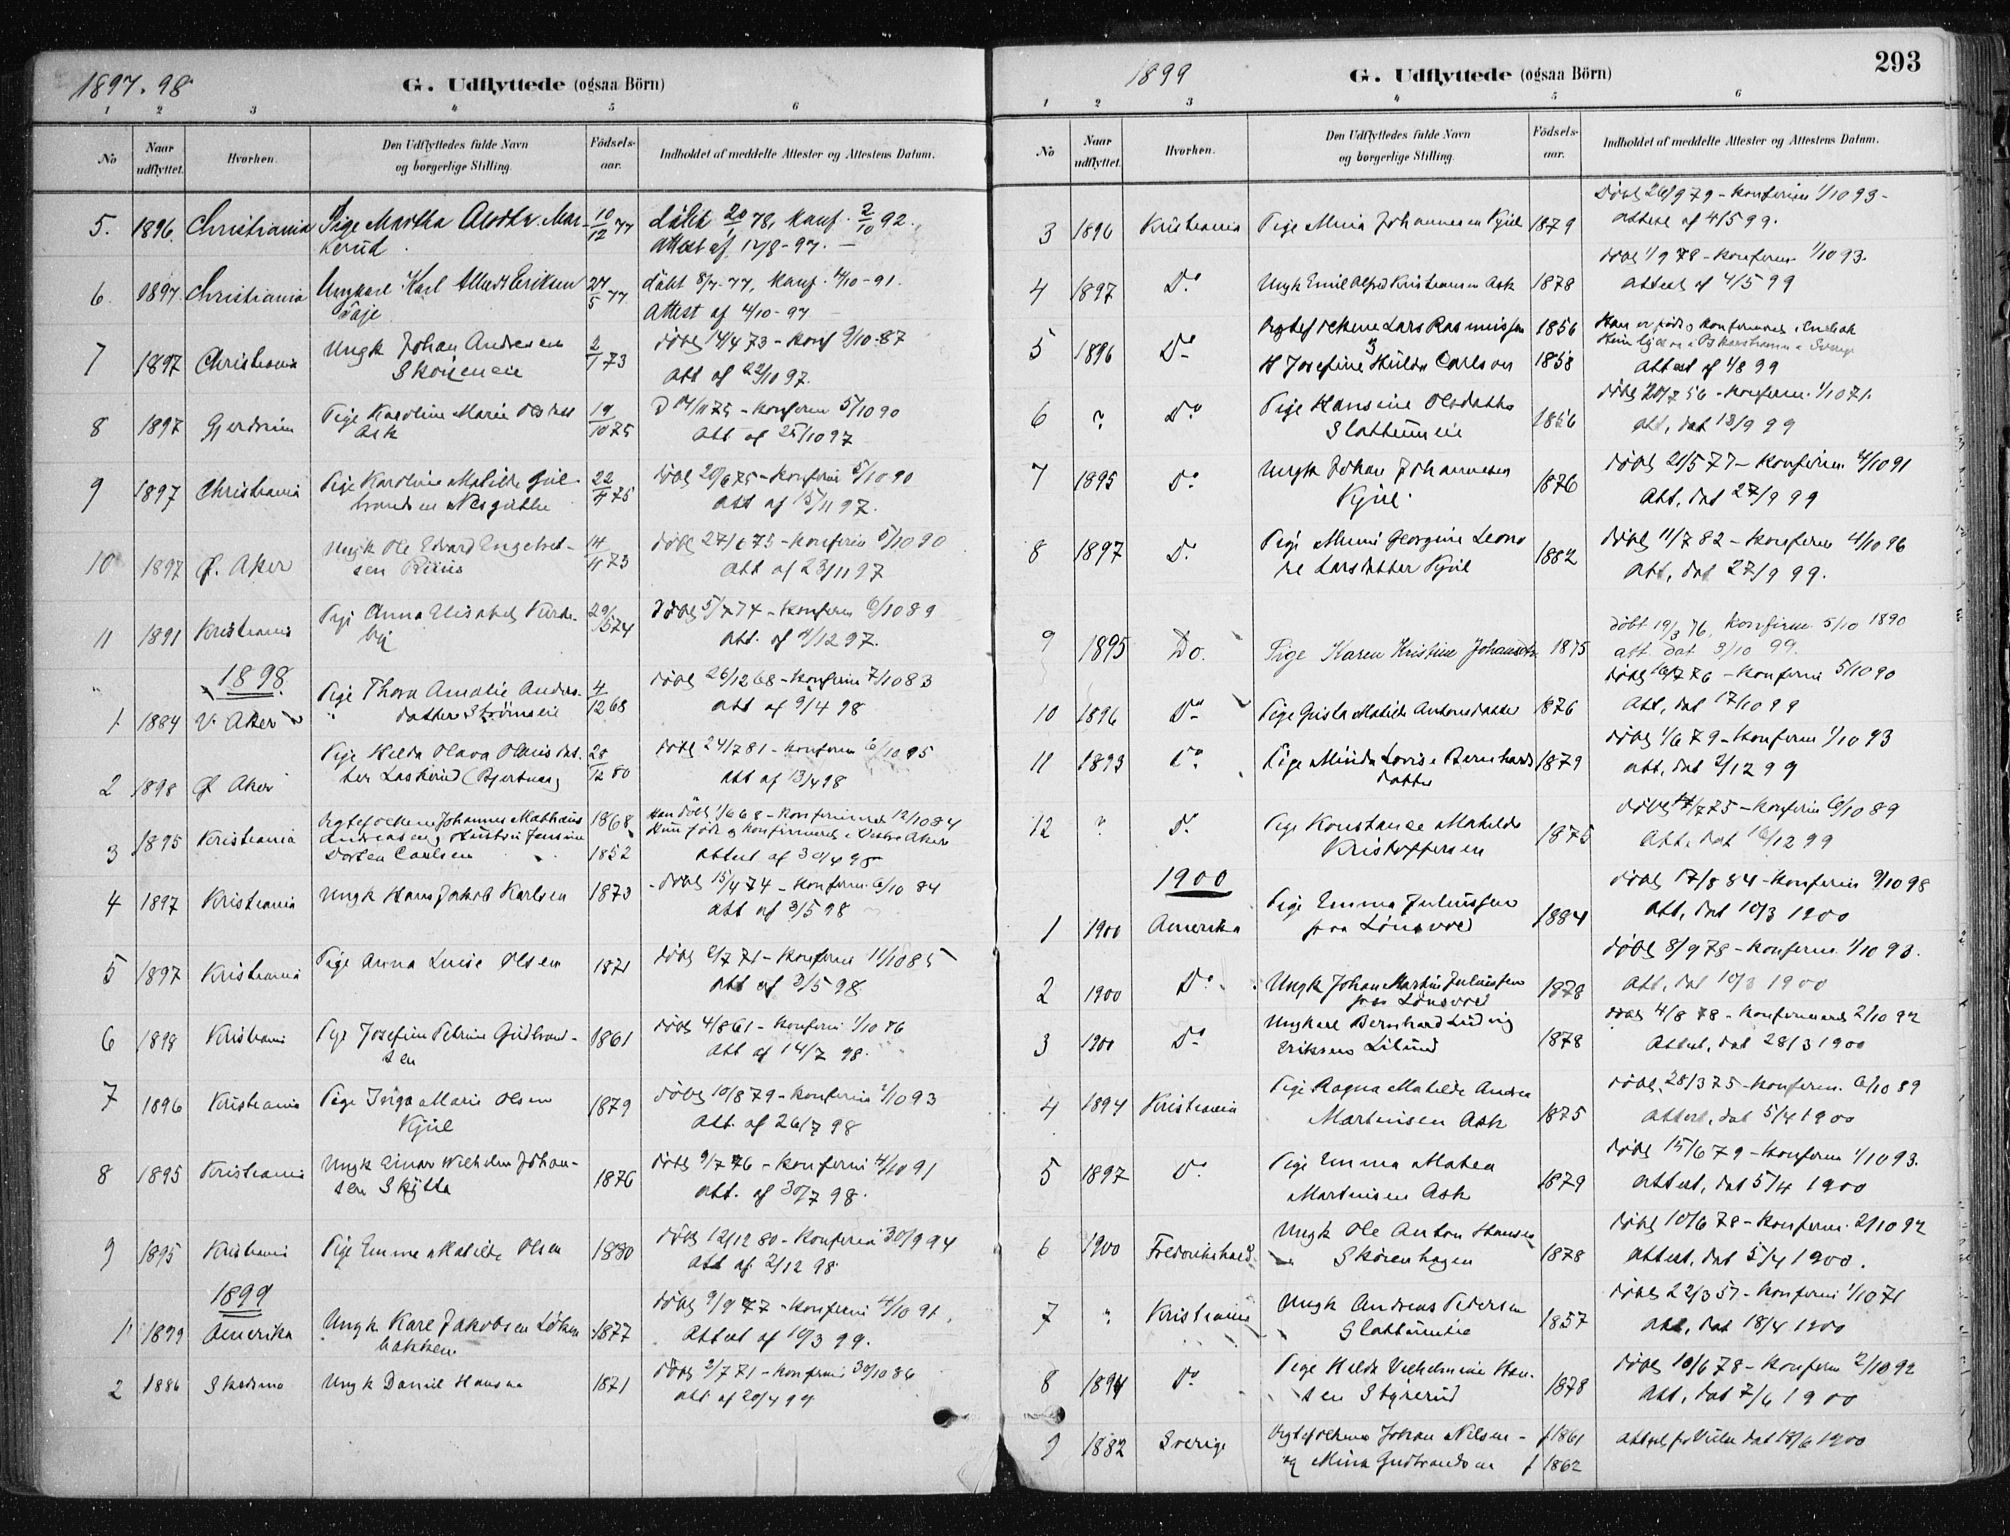 1897-98
G. Udflyttede (ogsaa Börn)
1 2 3 4 5 6
No
Naar udflyttet.
Hvorhen.
Den Udflyttedes fulde Navn og borgerlige Stilling.
Födsels-aar.
Indholdet af meddelte Attester og Attestens Datum.
5. 1896. Christiania Pige Martha Mar- 10/12 77 döbt 20/1 78, konf. 2/10 92.
kerud. Attest af 12/8-97. —
6. 1897. Christiania Ungkarl Karl Eriksen 27/5 77 döbt 8/7-77, konf. 4/10-91.
Attest af 4/10-97
7 1897 Christiania Ungk Johan Andresen 2/1 73 döbt 14/4 73 - konf 9/10-87
Att af 22/10 97.
8 1897 Gjerdrum Pige Karoline Marie Olsdatt 19/10 75 D 14/11 75 - konfirm 5/10 90
Ask Att af 25/10 97
9 1897 Christiania Pige Karoline Matilde Gul- 22/4 75 döbt 20/6 75 - konfirm 5/10 90
brandsen Att af 15/11 97.
10 1897 Ø. Aker Ungk Ole Edvard Engebret- 14/11 73 - konfirm 5/10 90
sen Att af 23/11 97
11 1891 Kristiania Pige Anna Elisabet 29/5 74 Döbt 5/7 74 - konfirm 6/10 89
Att. af 4/12 97.
1898.
1 1884 V. Aker Pige Thora Amalie Anders- 4/12 68 döbt 26/12 68 - konfirm 7/10 83
datter Strömseie att af 9/4 98
2 1898 Ø Aker Pige Hilda Olava 28/12 80 döbt 24/7 81 - konfirm 6/10 95
att af 13/4 98
3 1895 Kristiania Ægtefolkene Johannes Mathæus 1868 Han döbt 1/6 68 - konfirmeret 12/10 84
Andreasen og Jensine Hun född og konfirmeret i Vestre Aker
Dorten Carlsen 1852 Attest af 30/4 98
4 1897 Kristiania Ungk Hans Jakob Karlsen 1873 döbt 15/4 74 - konfirm. 6/10 84
att af 3/5 98
5 1897 Kristiania Pige Anna Luise Olsen 1871 döbt 2/7 71 - konfirm 11/10 85
Att af 3/5 98.
6 1898 Kristiania Pige Josefine Petrine Gudbrand- 1861 döbt 4/8 61 - konfirm 1/10 76
sen att af 14/7 98.
7 1896 Kristiania Pige Inga Marie Olsen 1879 döbt 10/8 79 - konfirm 1/10 93
Kjul Att. af 26/7 98
8 1895 Kristiania Ungk Einar Wilhelm Johan- 1876 döbt 9/7 76 - konfirm 4/10 91
sen Skytta att. af 30/7 98.
9 1895 Kristiania Pige Emma Matilde Olsen 1880 döbt 12/12 80 - konfirm 30/9 94
att af 2/12 98
1899
1 1899 Amerika Ungk Karl Jakobsen Löken- 1877 döbt 9/9 77 - konfirm 4/10 91.
bakken Attest af 10/3 99.
2 1886 Skedsmo Ungk Daniel Hansen 1871 döbt 2/7 71 - konfirm 30/10 86
att af 20/4 99
1899
G. Udflyttede (ogsaa Börn)
293
1 2 3 4 5 6
No
Naar udflyttet.
Hvorhen.
Den Udflyttedes fulde Navn og borgerlige Stilling.
Födsels-aar.
Indholdet af meddelte Attester og Attestens Datum.
3 1896 Kristiania Pige Mina Johannesen Kjul 1879 Döbt 26/9 79 - konfirm 1/10 93 -
attest af 4/5 99.
4 1897 Do Ungk Emil Alfred Kristiansen Ask 1878 döbt 1/9 78 - konfirm 1/10 93.
attest af 4/5 99
5 1896 Do Ægtefolkene Lars Rasmussen 1856 Han er född og konfirmeret i
og
H Josefine Hulda Carlson 1858 Attest af 1/8 99
6 " Do Pige Hansine Olsdatter 1856 döbt 20/7 56 - konfirm. 1/10 71.
Slattumeie att, dat 13/9 99
7 1895 Do Ungk Johan Johannesen 1876 döbt 21/5 77 - konfirm 4/10 91
Kjul. Att. dat 27/9 99
8 1897 Do Pige Georgine Leono- 1882 döbt 11/7 82 - konfirm 4/10 96
re Larsdatter Kjul att, dat 27/9 99.
9 1895 Do. Pige Karen Kristine Johansdtr 1875 döbt 19/3 76, konfirm. 5/10 1890
att. dat 3/10 99.
10 1896 Do Pige Gusta Matilde Antonsdatter 1876 döbt 16/7 76 - konfirm 5/10 90
Att, dat 17/10 99
11 1893 Do Pige Minda Lovise Bernhards 1879 döbt 1/6 79 - konfirm 1/10 93
datter att, dat 2/12 99
12 " Do Pige Konstance Mathilde 1875 - konfirm 6/10 89
Kristoffersen Att. dat 16/12 99
1900
1 1900 Amerika Pige Emma Juliussen 1884 döbt 17/8 84 - konfirm 9/10 98
fra Att, dat 10/3 1900
2 1900 Do Ungk Johan Martin Juliussen 1878 döbt 8/9 78 - konfirm. 1/10 93.
fra Att, dat 10/3 1900
3 1900 Do Ungkarl Bernhard Ludvig 1878 döbt 4/8 78 - konfirmeret 2/10 92
Eriksen Attest, dat 28/3 1900
4 1894 Kristiania Pige Ragna Matilde Andrea 1875 döbt, 28/3 75 - konfirm. 6/10 89
Martinsen Ask attest, dat 5/4 1900
5 1897 Do Pige Emma Matea 1879 döbt 15/6 79 - konfirm 1/10 93.
Martinsen Ask attest, dat 5/4 1900
6 1900 Frederikshald Ungk Ole Anton Hansen 1878 döbt 10/6 78 - konfirm. 2/10 92
Skörenhagen attest, dat 5/4 1900.
7 " Kristiania Ungk Andreas Pedersen 1857 döbt 22/3 57 - konfirm 1/10 71
att, dat 18/4 1900
8 1894 Do Pige Hilda Vilhelmine Han- 1878 döbt 10/6 78 - konfirm 2/10 92
sen Styrerud Att, dat 7/6 1900
9 1882 Sverige Ægtefolkene Johan Nilsen - f 1861 attest dat 18/6 1900
og Mina Gudbrandsen f 1862